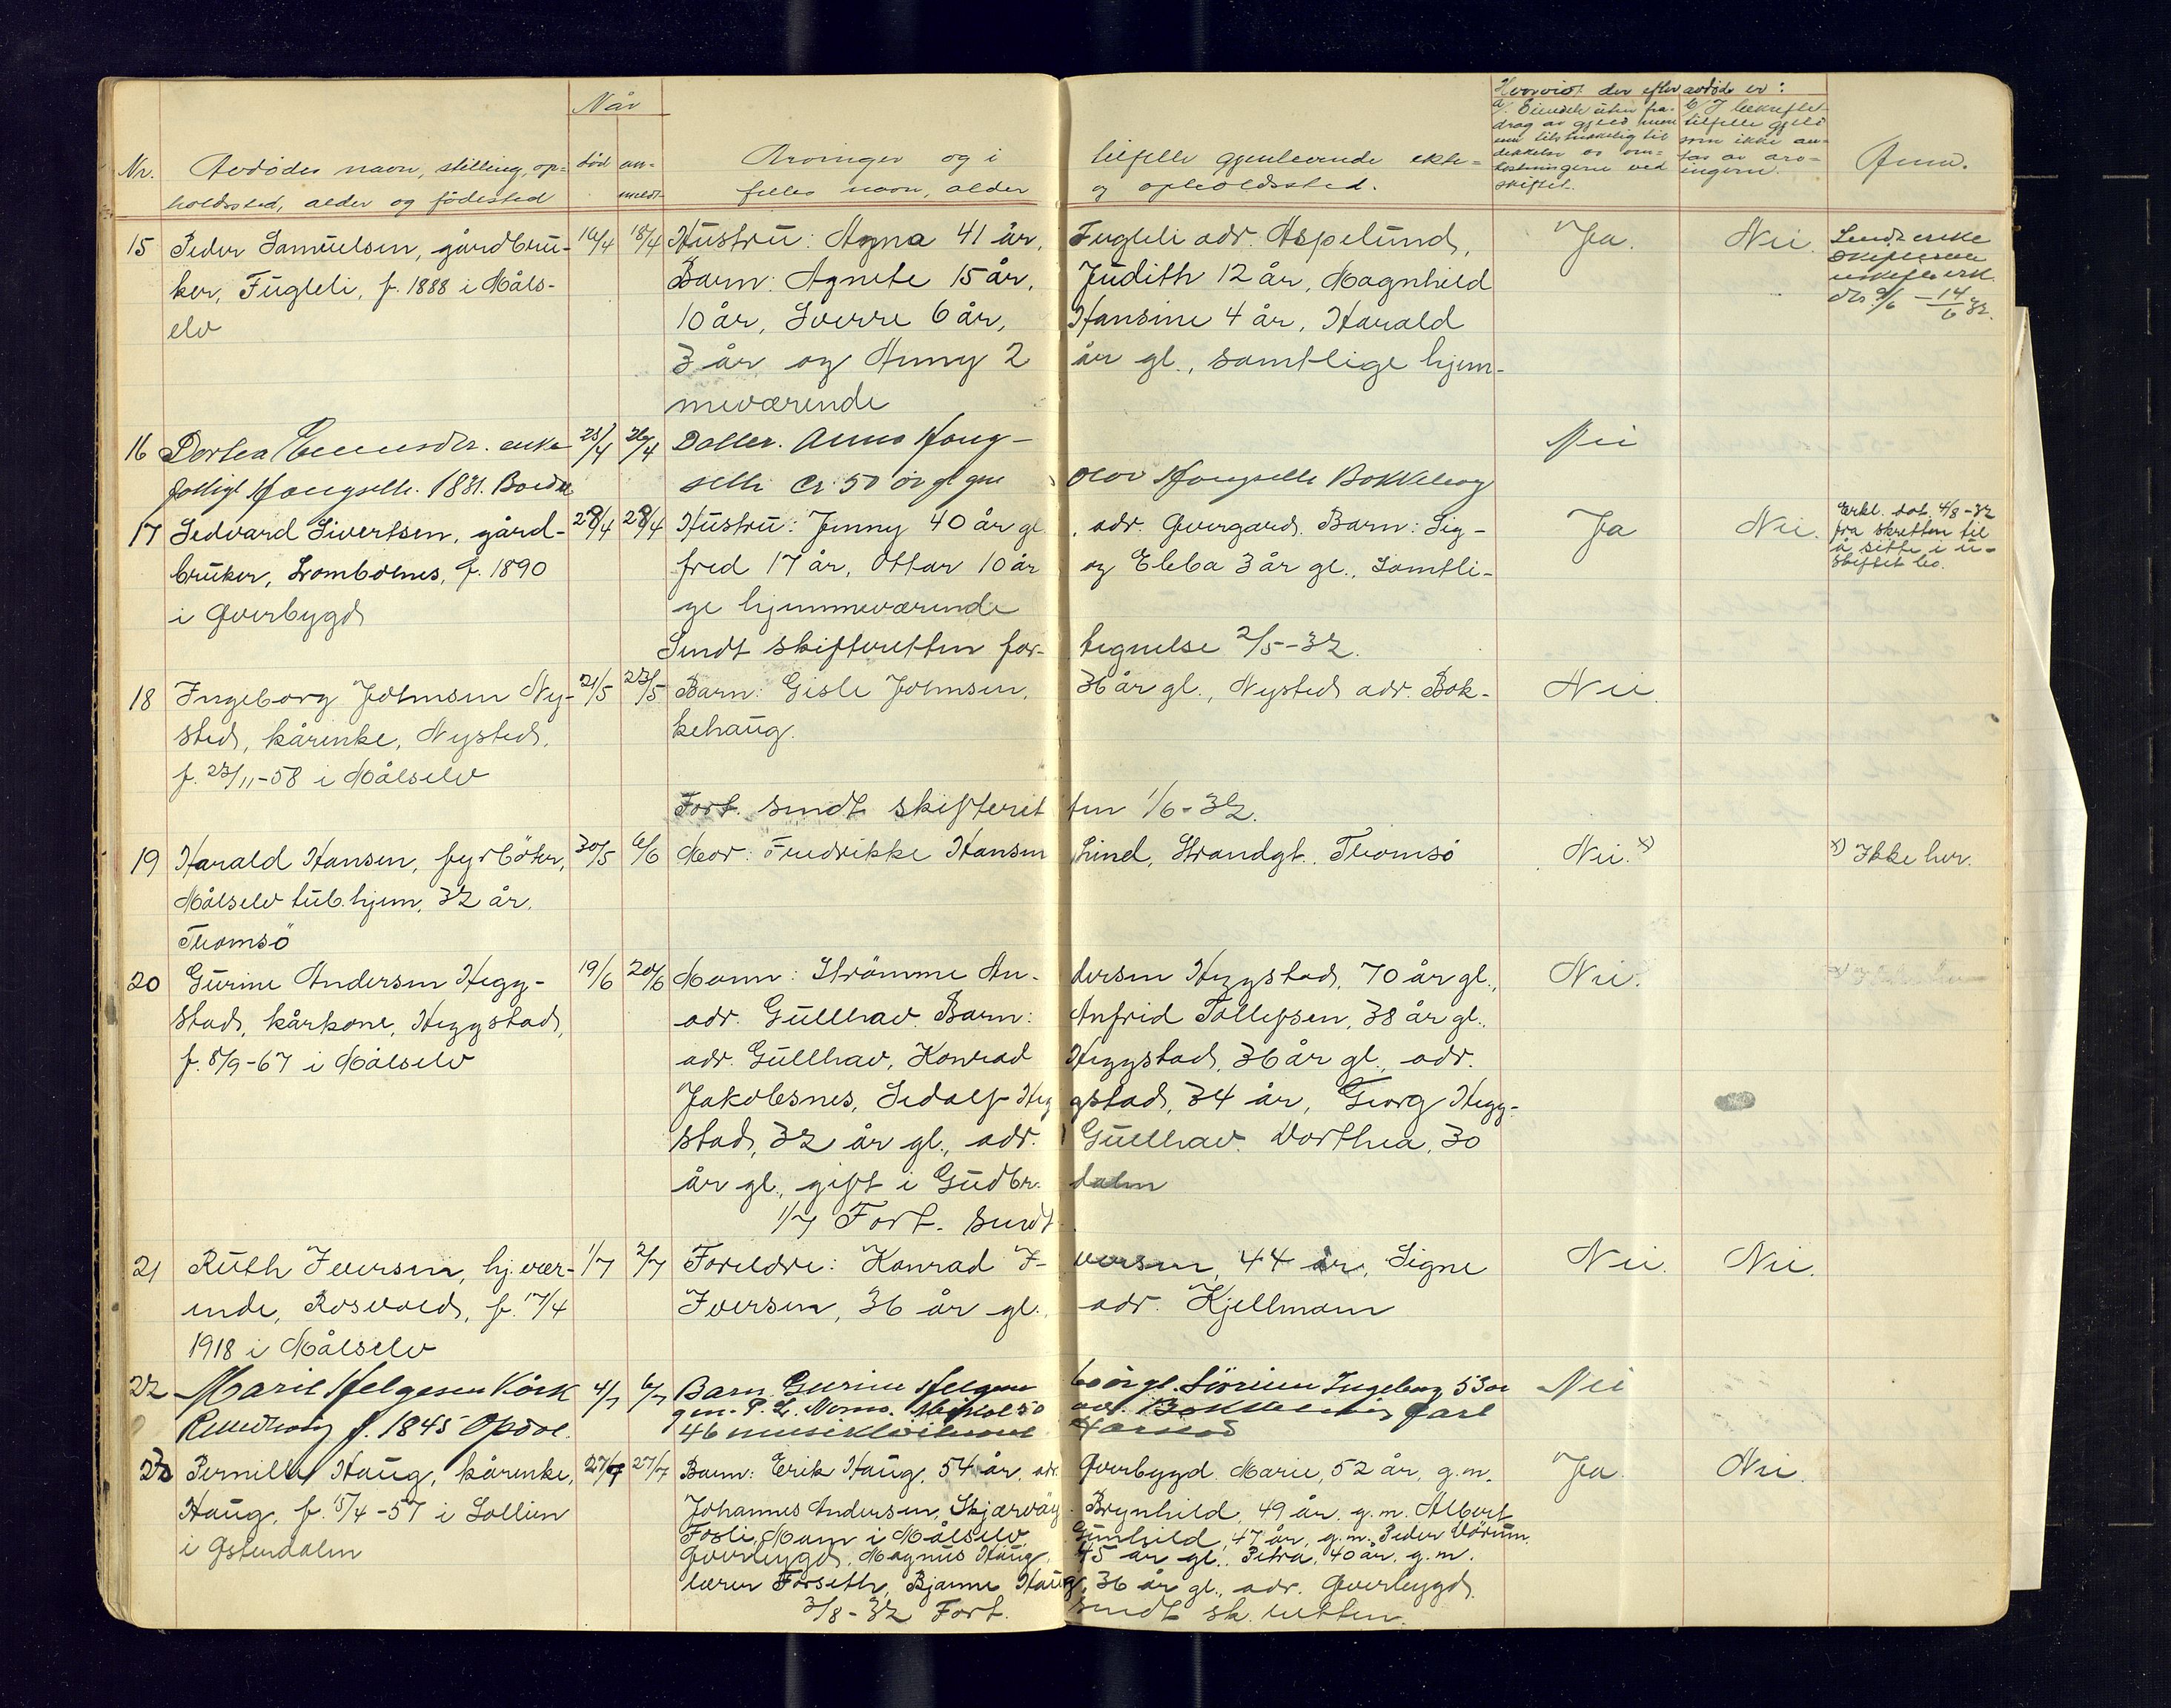 Når
Hvorvidt der efter avdøde er:
Nr. Avdødes navn, stilling, op-
holdssted, alder og fødested
død
an-
meldt
Arvinger og i tilfelle gjenlevende ekte-
felles navn, alder og opholdssted.
a/ Eiendele uten fra-
drag av gjeld men
som tilstrækkelig til
dekkelse av om-
kostningerne ved
skiftet.
b/ I bekreftet
tilfelle gjeld
som ikke an-
tas av arv-
ingerne.
Anm.
15 Peder Samuelsen, gårdbru- 16/4 18/4 Hustru: Agna 41 år, Fugleli adr. Aspelund, Ja. Nei.
ker, Fugleli, f. 1888 i Måls- Barn: Agnete 15 år, Judith 12 år, Magnhild
elv 10 år, Sverre 6 år, Hansine 4 år, Harald
3 år og Anny 2 år gl., samtlige hjem-
meværende
Sendt enke
14/6 32.
16 Dortea enke 26/4 Datter. Anna Haug- Nei
1831. seth ca 50 år gl gm Olov Haugseth Bokkehaug
17 Sedvard Sivertsen, gård- 28/4 28/4 Hustru: Jenny 40 år gl., adr. Øvergard. Barn: Sig- Ja Nei.
bruker, Trombolnes, f. 1890 fred 17 år, Ottar 10 år og Ebba 3 år gl., Samtli-
i Øverbygd ge hjemmeværende
Sendt skifteretten for- tegnelse 2/5-32.
Erkl. dat. 4/8-32
fra skretten til
å sitte i u-
skiftet bo.
18 Ingeborg Johnsen Ny- 21/5 23/5 Barn: Gisle Johnsen, 36 år gl., Nysted adr. Bok- Nei.
sted, kårenke, Nysted, kehaug.
f. 23/11-58 i Målselv
Fort. sendt skifteret ten 1/6-32.
19 Harald Hansen, fyrbøter, 30/5 6/6 Mor: Fredrikke Hansen Lind, Strandgt. Tromsø Nei. x) x) Ikke her.
Målselv tub.hjem, 32 år.
Tromsø
20 Gurine Andersen Hegg- 19/6 20/6 Mann: Strømme An- dersen Heggstad, 70 år gl., Nei.
stad, kårkone, Heggstad, adr. Gullhav. Barn: Anfrid Tollefsen, 38 år gl.,
f. 8/9-67 i Målselv adr. Gullhav, Konrad Heggstad, 36 år gl., adr.
Jakobsnes, Sedolf Heg gstad, 34 år, Georg Hegg-
stad, 32 år gl., adr. Gullhav. Dorthea, 30
år gl., gift i Gudbr. dalen
1/7 Fort. sendt
21 Ruth Iversen, hj.vær- 1/7 2/7 Foreldre: Konrad I- versen, 44 år, Signe Nei. Nei.
ende, Rosvold, f. 17/4 Iversen, 36 år gl., adr. Kjellmann
1918 i Målselv
22 Marit Helgesen Kårk 4/7 6/7 Barn Gurine Helgesen 60 år gl. Ingeborg 53 år Nei
f. 1845 Opdal. gm. P. L. Momo. adr. Jarl
46 Harstad
23 Pernille Haug, kårenke, 27/7 27/7 Barn: Erik Haug, 54 år, adr. Øverbygd. Marie, 52 år, g.m. Ja. Nei.
Haug, f. 15/4-57 i Sollien Johannes Andersen, Skjærvøy. Brynhild, 49 år, g.m. Albert
i Østerdalen Fosli, Moen i Målselv. Gunhild, 47 år, g.m. Peder Vårum,
Øverbygd, Magnus Haug, 45 år gl., Petra, 40 år, g.m.
lærer Forseth, Bjarne Haug, 36 år gl., adr. Øverbygd.
3/8-32 Fort. sendt sk.retten.